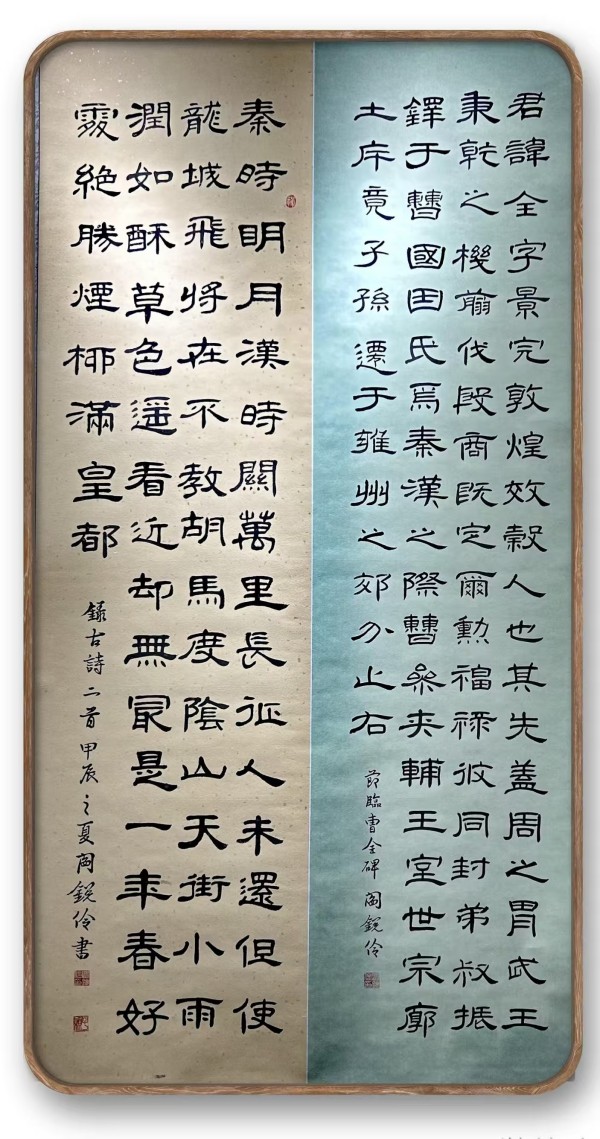 君諱全字景完敦煌效穀人也其先蓋周之胄武王
秉乾之機翦伐殷商既定爾勳福祿攸同封弟叔振
鐸于曹國因氏焉秦漢之際曹參夾輔王室世宗廓
土斥竟子孫遷于雍州之郊分止右
節臨曹全碑 閻銳伶
秦時明月漢時關萬里長征人未還但使
龍城飛將在不教胡馬度陰山天街小雨
潤如酥草色遥看近却無最是一年春好
處絶勝煙柳滿皇都
錄古詩二首甲辰之夏閻銳伶書